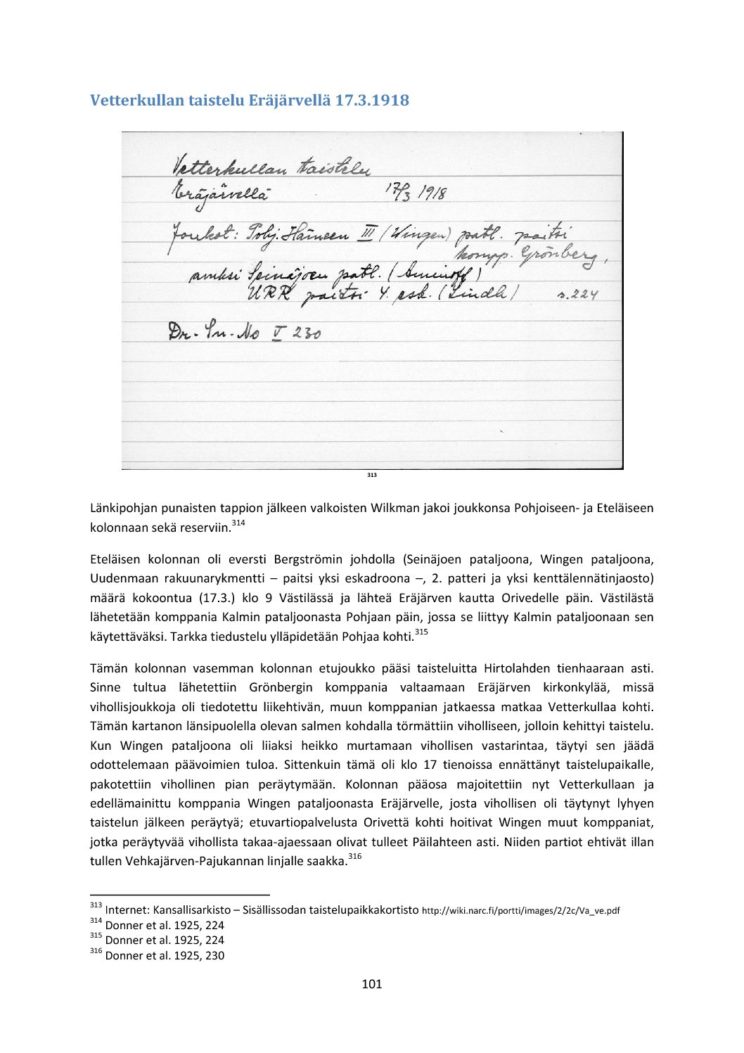 Vetterkullan taistelu Eräjärvellä 17.3.1918
Vetterkullan taistelu
Eräjärvellä 17/3 1918
Joukot: Pohj. Hämeen III (Wingen) patl. paitsi
komp. Grönberg,
Seinäjoen patl. (Aminoff)
URR paitsi 4. esk. (Lindh) s. 224
Dr-Su-No V 230
313
Länkipohjan punaisten tappion jälkeen valkoisten Wilkman jakoi joukkonsa Pohjoiseen- ja Eteläiseen
kolonnaan sekä reserviin.314
Eteläisen kolonnan oli eversti Bergströmin johdolla (Seinäjoen pataljoona, Wingen pataljoona,
Uudenmaan rakuunarykmentti – paitsi yksi eskadroona –, 2. patteri ja yksi kenttälennätinjaosto)
määrä kokoontua (17.3.) klo 9 Västilässä ja lähteä Eräjärven kautta Orivedelle päin. Västilästä
lähetetään komppania Kalmin pataljoonasta Pohjaan päin, jossa se liittyy Kalmin pataljoonaan sen
käytettäväksi. Tarkka tiedustelu ylläpidetään Pohjaa kohti.315
Tämän kolonnan vasemman kolonnan etujoukko pääsi taisteluitta Hirtolahden tienhaaraan asti.
Sinne tultua lähetettiin Grönbergin komppania valtaamaan Eräjärven kirkonkylää, missä
vihollisjoukkoja oli tiedotettu liikehtivän, muun komppanian jatkaessa matkaa Vetterkullaa kohti.
Tämän kartanon länsipuolella olevan salmen kohdalla törmättiin viholliseen, jolloin kehittyi taistelu.
Kun Wingen pataljoona oli liiaksi heikko murtamaan vihollisen vastarintaa, täytyi sen jäädä
odottelemaan päävoimien tuloa. Sittenkuin tämä oli klo 17 tienoissa ennättänyt taistelupaikalle,
pakotettiin vihollinen pian peräytymään. Kolonnan pääosa majoitettiin nyt Vetterkullaan ja
edellämainittu komppania Wingen pataljoonasta Eräjärvelle, josta vihollisen oli täytynyt lyhyen
taistelun jälkeen peräytyä; etuvartiopalvelusta Orivettä kohti hoitivat Wingen muut komppaniat,
jotka peräytyvää vihollista takaa-ajaessaan olivat tulleet Päilahteen asti. Niiden partiot ehtivät illan
tullen Vehkajärven-Pajukannan linjalle saakka.316
313 Internet: Kansallisarkisto – Sisällissodan taistelupaikkakortisto http://wiki.narc.fi/portti/images/2/2c/Va_ve.pdf
314 Donner et al. 1925, 224
315 Donner et al. 1925, 224
316 Donner et al. 1925, 230
101